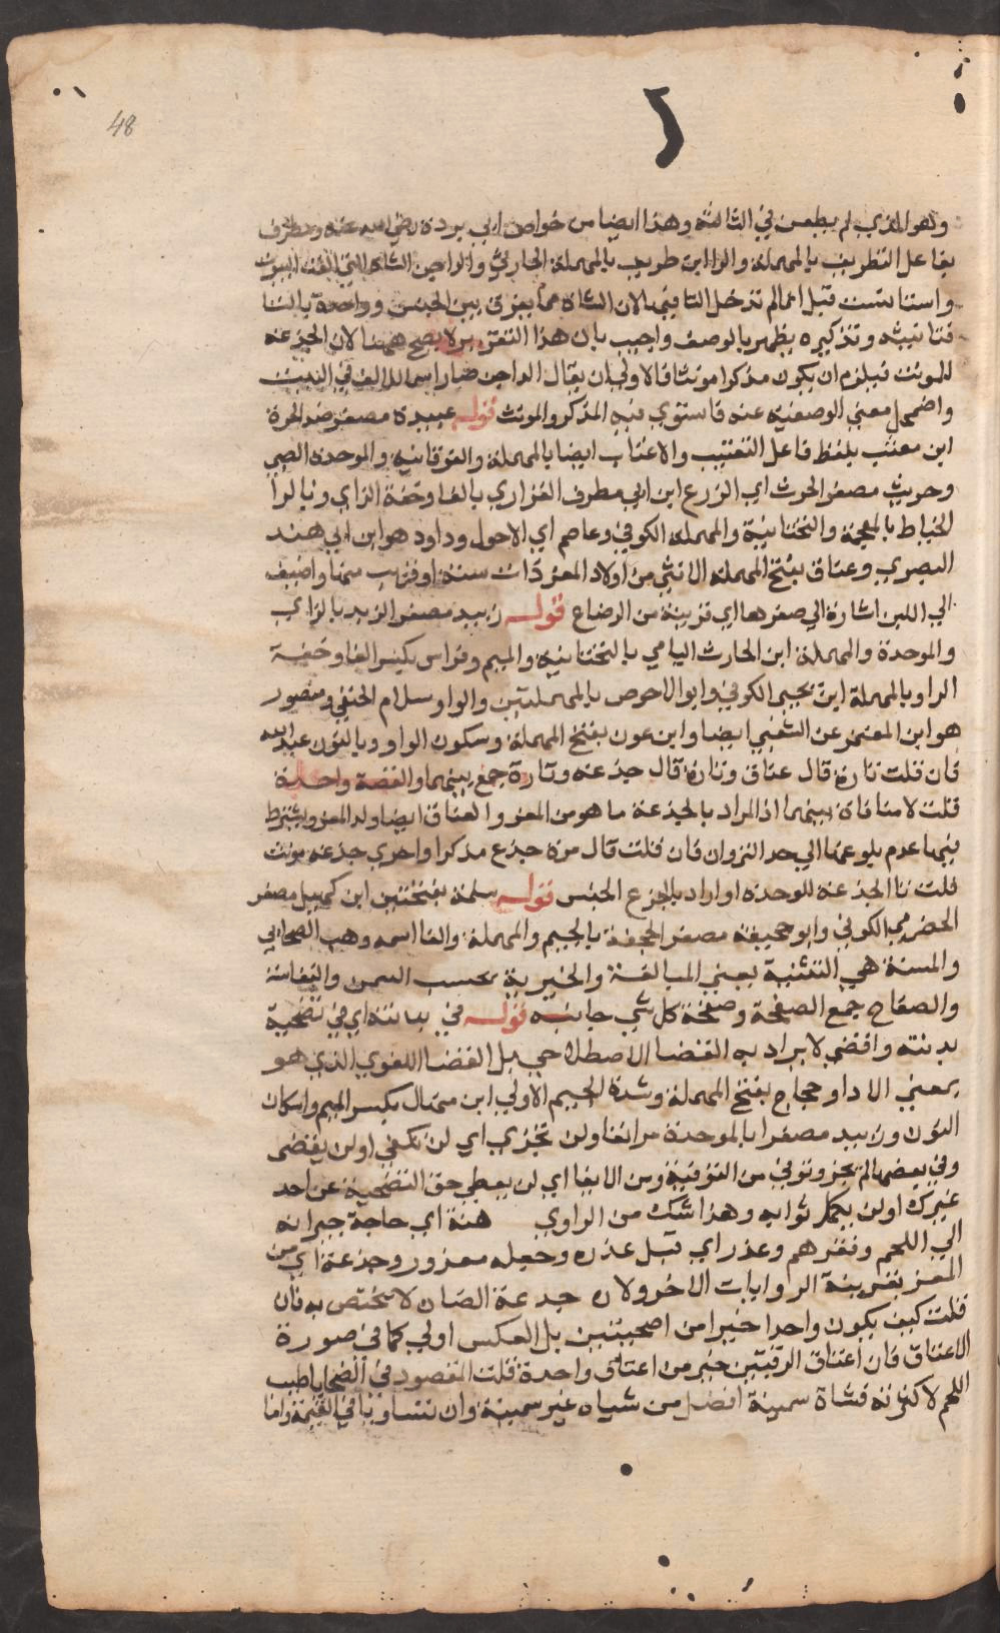 48
وهو الذي لم يطعن في الثالثة وهذا ايضا من خواص ابي بردة رضي الله عنه ومطرف
بفاعل التطريف بالمهملة والرا ابن طريف بالمهملة الحارثي والداجن الشاة التي الفت البيوت
واستانست قيل انما لم تدخل التا فيها لان الشاة مما يفرق بين الجنس وواحده بالتا
فتانيثه وتذكيره يظهر بالوصف واجيب بان هذا التقرير لا يصح ههنا لان الجذعة
للمونث فيلزم ان يكون مذكرا مونثا فالاولي ان يقال الداجن صار اسما للالف في البيت
واضمحل معني الوصفية عنه فاستوي فيه المذكر والمونث قوله عبيدة مصغر ضد الحرة
ابن معتب بلفظ فاعل التعتيب والاعتاب ايضا بالمهملة والفوقانية والموحدة الضبي
وحريث مصغر الحرث اي الزرع ابن ابي مطرف الفزاري بالفا وخفة الزاي وبالرا
الخياط بالمعجمة والتحتانية والمهملة الكوفي وعاصم اي الاحول وداود هو ابن ابي هند
البصري وعناق بفتح المهملة الانثي من اولاد المعز ذات سنة او قريب منها واضيف
الي اللبن اشارة الي صغرها اي قريبة من الرضاع قوله زبيد مصغر الزبد بالزاي
والموحدة والمهملة ابن الحارث اليامي بالتحتانية والميم وفراس بكسر الفا وخفة
الرا وبالمهملة ابن يحيى الكوفي وابو الاحوص بالمهملتين والواو سلام الحنفي ومنصور
هو ابن المعتمر عن الشعبي ايضا وابن عون بفتح المهملة وسكون الواو وبالنون عبد الله
فان قلت تارة قال عناق وتارة قال جذعة وتارة جمع بينهما والقصة واحدة
قلت لا منافاة بينهما اذ المراد بالجذعة ما هو من المعز والعناق ايضا ولد المعز ويشترط
فيها عدم بلوغها الي حد النزوان فان قلت قال مرة جذع مذكرا واخري جذعة مونث
قلت تا الجذعة للوحدة او اراد بالجذع الجنس قوله سلمة بفتحتين ابن كهيل مصغر
الحضرمي الكوفي وابو جحيفة مصغر الجحفة بالجيم والمهملة والفا اسمه وهب الصحابي
والمسنة هي الثنية بمعني المبالغة والخيرية بحسب السمن والنفاسة
والصفاح جمع الصفحة وصفحة كل شي جانبه قوله في بدنته اي في تضحية
بدنته واقضي لا يراد به القضا الاصطلاحي بل القضا اللغوي الذي هو
بمعني الادا وحجاج بفتح المهملة وشدة الجيم الاولي ابن منهال بكسر الميم واسكان
النون وزبيد مصغرا بالموحدة مر انفا ولن تجزي اي لن تكفي او لن يقضى
وفي بعضها لم يجز وتوفي من التوفية ومن الايفا اي لن يعطي حق التضحية عن احد
غيرك او لن يكمل ثوابه وهذا شك من الراوي هنة اي حاجة جيرانه
الي اللحم وفقرهم وعذر اي قبل عذره وجعله معذور وجذعة اي من
المعز بقرينة الروايات الاخر ولان جذعة الضان لا تختص به فان
قلت كيف يكون واحدا خيرا من اضحيتين بل العكس اولي كما في صورة
الاعتاق فان اعتاق الرقبتين خير من اعتاق واحدة قلت المقصود في الضحايا طيب
اللحم لا كثرته فشاة سمينة افضل من شياه غير سمينة وان تساويا في القيمة واما